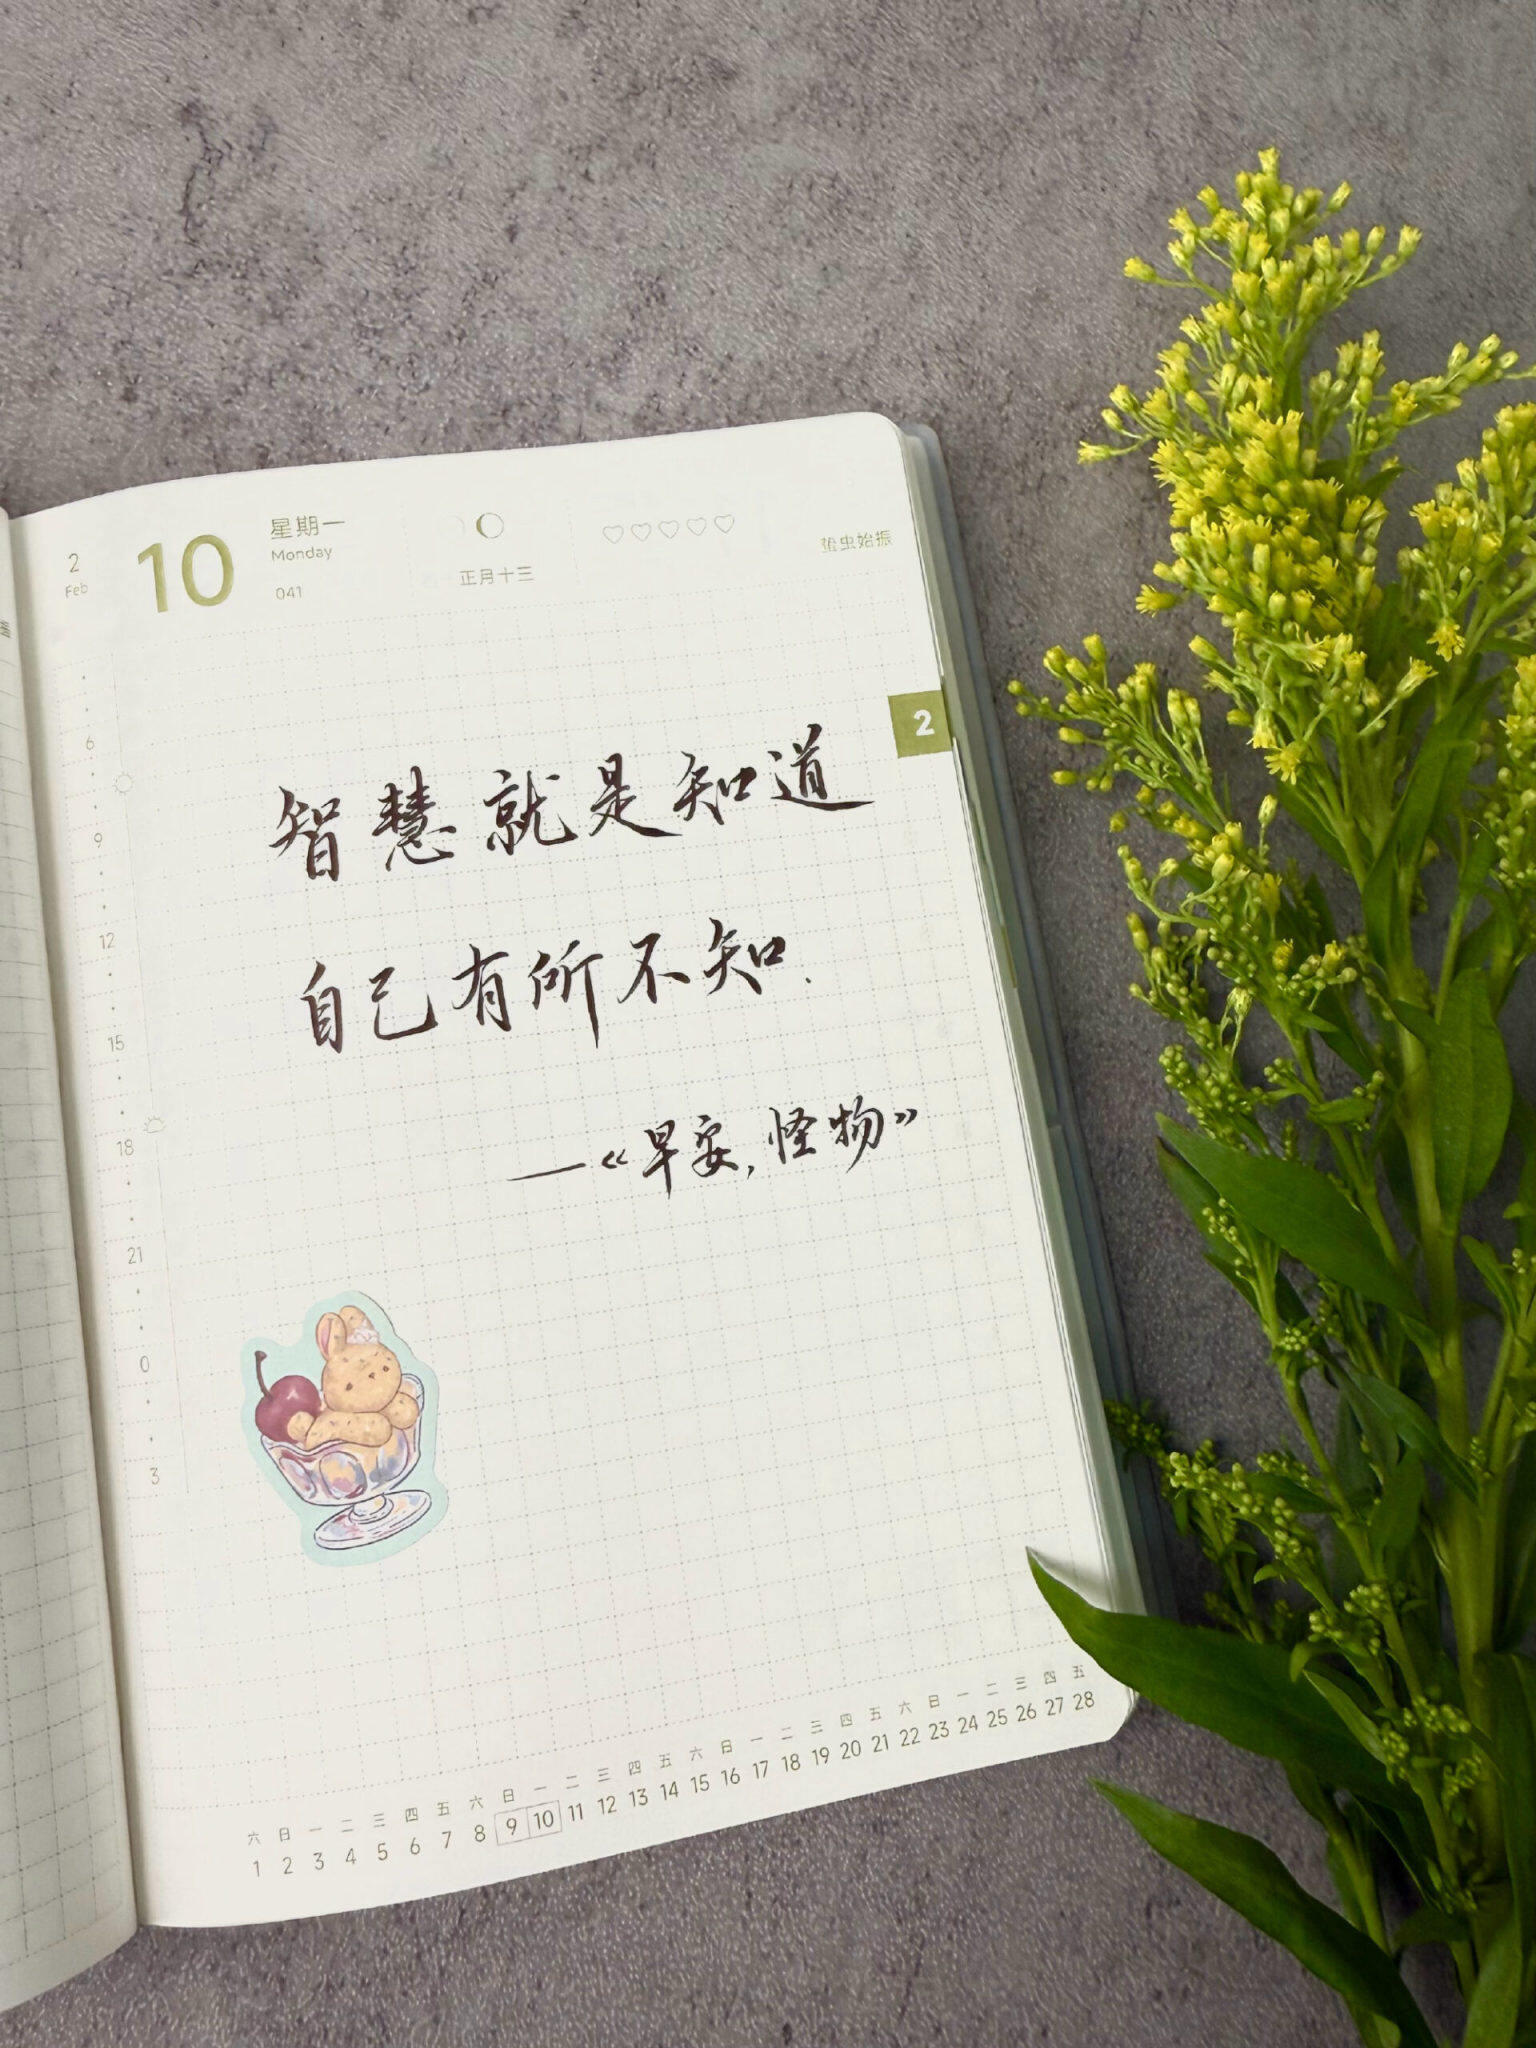 2
Feb
10
星期一
Monday
041
正月十三
蛰虫始振
2
6
9
12
15
18
21
0
3
智慧就是知道
自己有所不知.
—《早安,怪物》
六 日 一 二 三 四 五 六 日 一 二 三 四 五 六 日 一 二 三 四 五 六 日 一 二 三 四 五
1 2 3 4 5 6 7 8 9 10 11 12 13 14 15 16 17 18 19 20 21 22 23 24 25 26 27 28